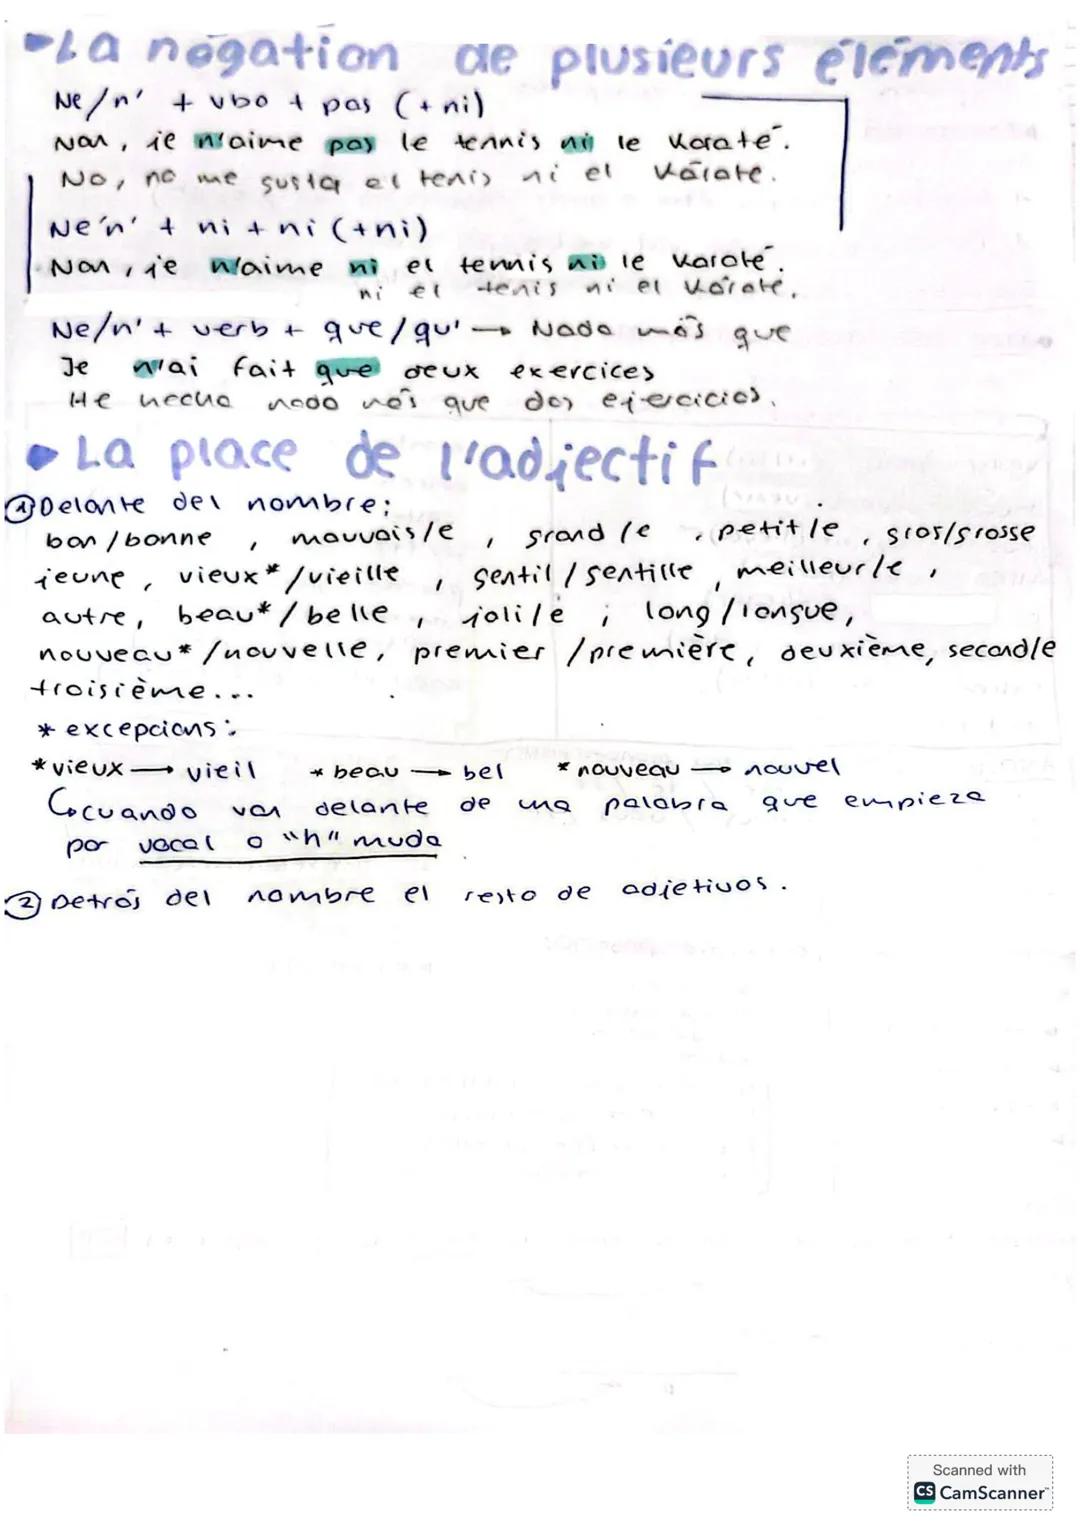 La négation de plusieurs éléments
Ne/n' + vbo + pas (+ni)
Non, je n'aime pas le tennis ni le karaté.
No, no me gusta el tenis ni el kárate.
Ne'n' + ni + ni (+ni)
Non, je n'aime ni el tennis ni le karaté.
ni el tenis ni el kárate.
Ne/n' + verb + que/qu' → Nada más que
Je n'ai fait que deux exercices
He hecho nada más que dos ejercicios.
La place de l'adjectif
① Delante del nombre:
bon/bonne, mauvais/e, grand/e, petit/e, gros/grosse
jeune, vieux*/vieille, gentil/gentille, meilleur/e,
autre, beau*/belle, joli/e; long/longue,
nouveau*/nouvelle, premier/première, deuxième, second/e
troisième...
* excepcions:
* vieux → vieil * beau → bel * nouveau → nouvel
↳ cuando van delante de una palabra que empieza
por vocal o "h" muda
② Detrás del nombre el resto de adjetivos.
Scanned with
CS CamScanner